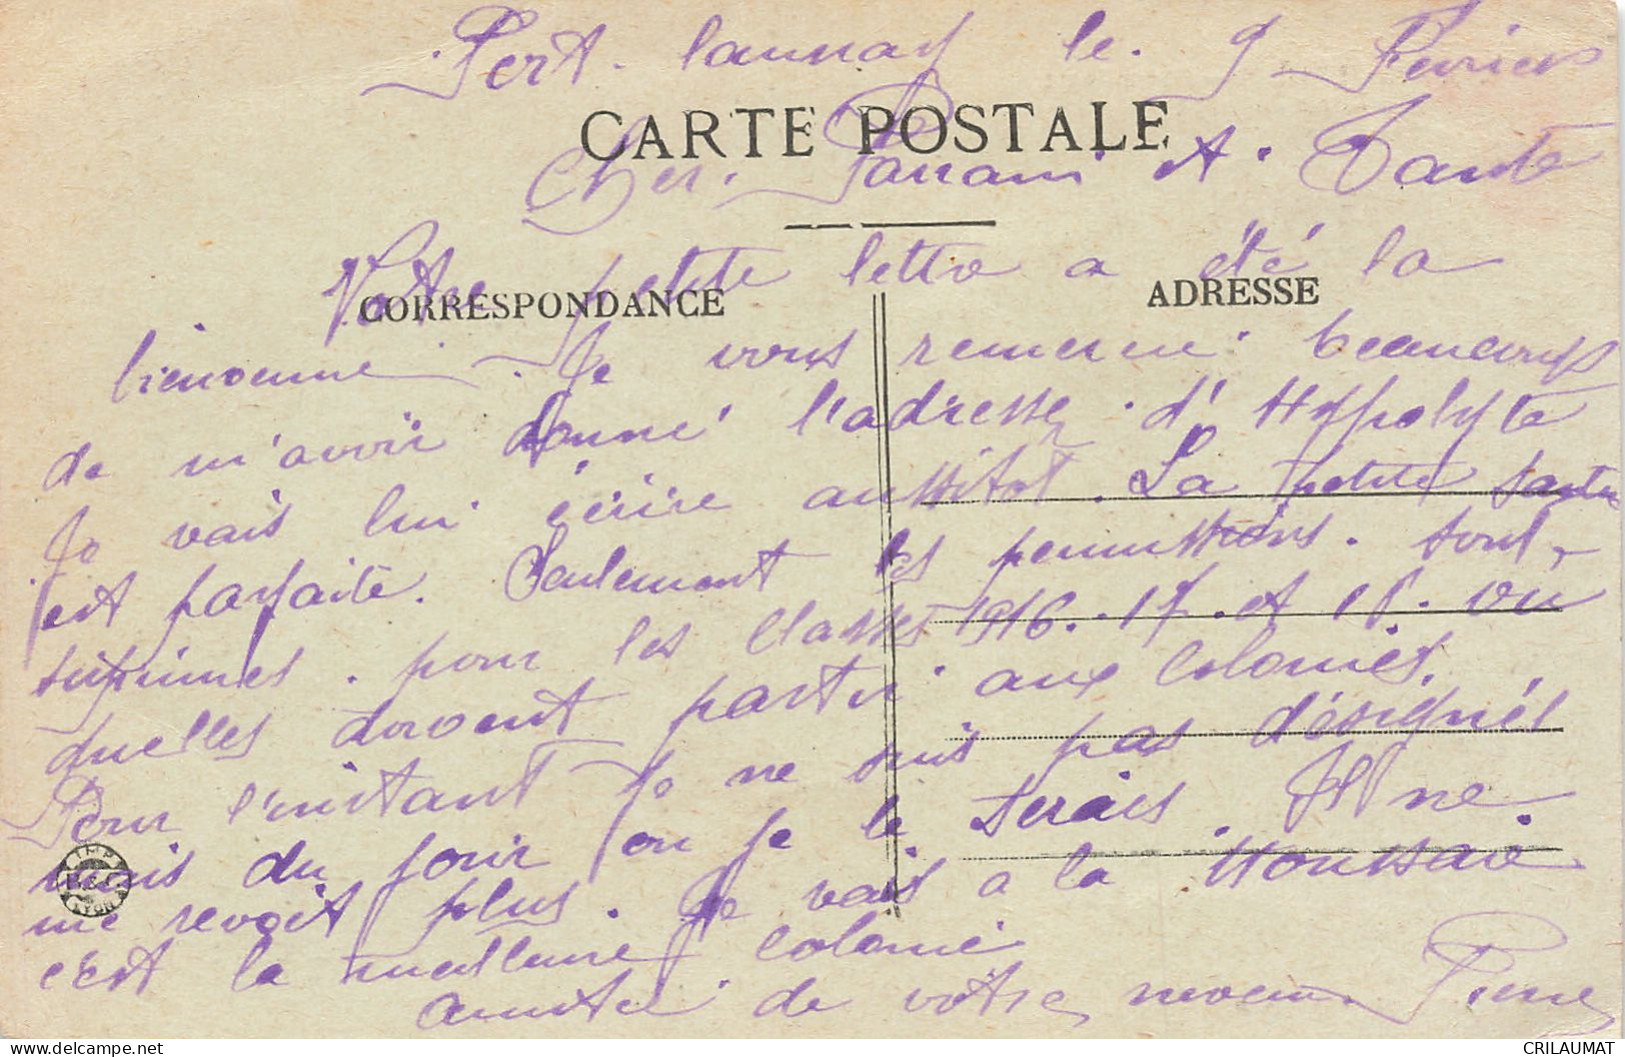 Port. launay le. 9 Fevrier
CARTE POSTALE
Cher. Parrain et. Tante
Votre petite lettre a été la
CORRESPONDANCE
ADRESSE
bienvenue. Je vous remercie beaucoup
de m'avoir donné l'adresse d'Hypolyte
Je vais lui écrire aussitot. La petite Santé
est parfaite. Seulement les permissions. sont
suprimes. pour les classes 1916. 17. et 18. ou
quelles doivent partir aux colonies.
Pour l'instant Je ne suis pas désignés
mais du jour ou je le serais Il ne
me revoit plus. Je vais a la Houssaie
c'est la meilleure colonie
amitié de votre neveu. Pierre
IMP
LYON
CRILAUMAT